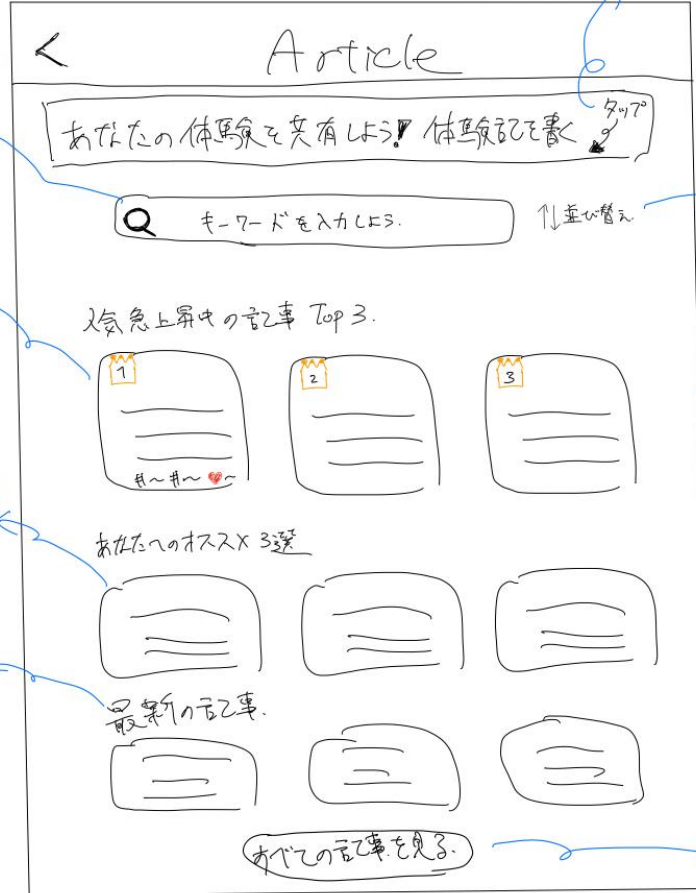 < Article
あなたの体験を共有しよう! 体験記を書く
タップ
キーワードを入力しよう.
↑↓並び替え
人気急上昇中の記事 Top 3.
1
2
3
#~ #~ ❤~
あなたへのオススメ 3選
最新の記事.
すべての記事を見る.